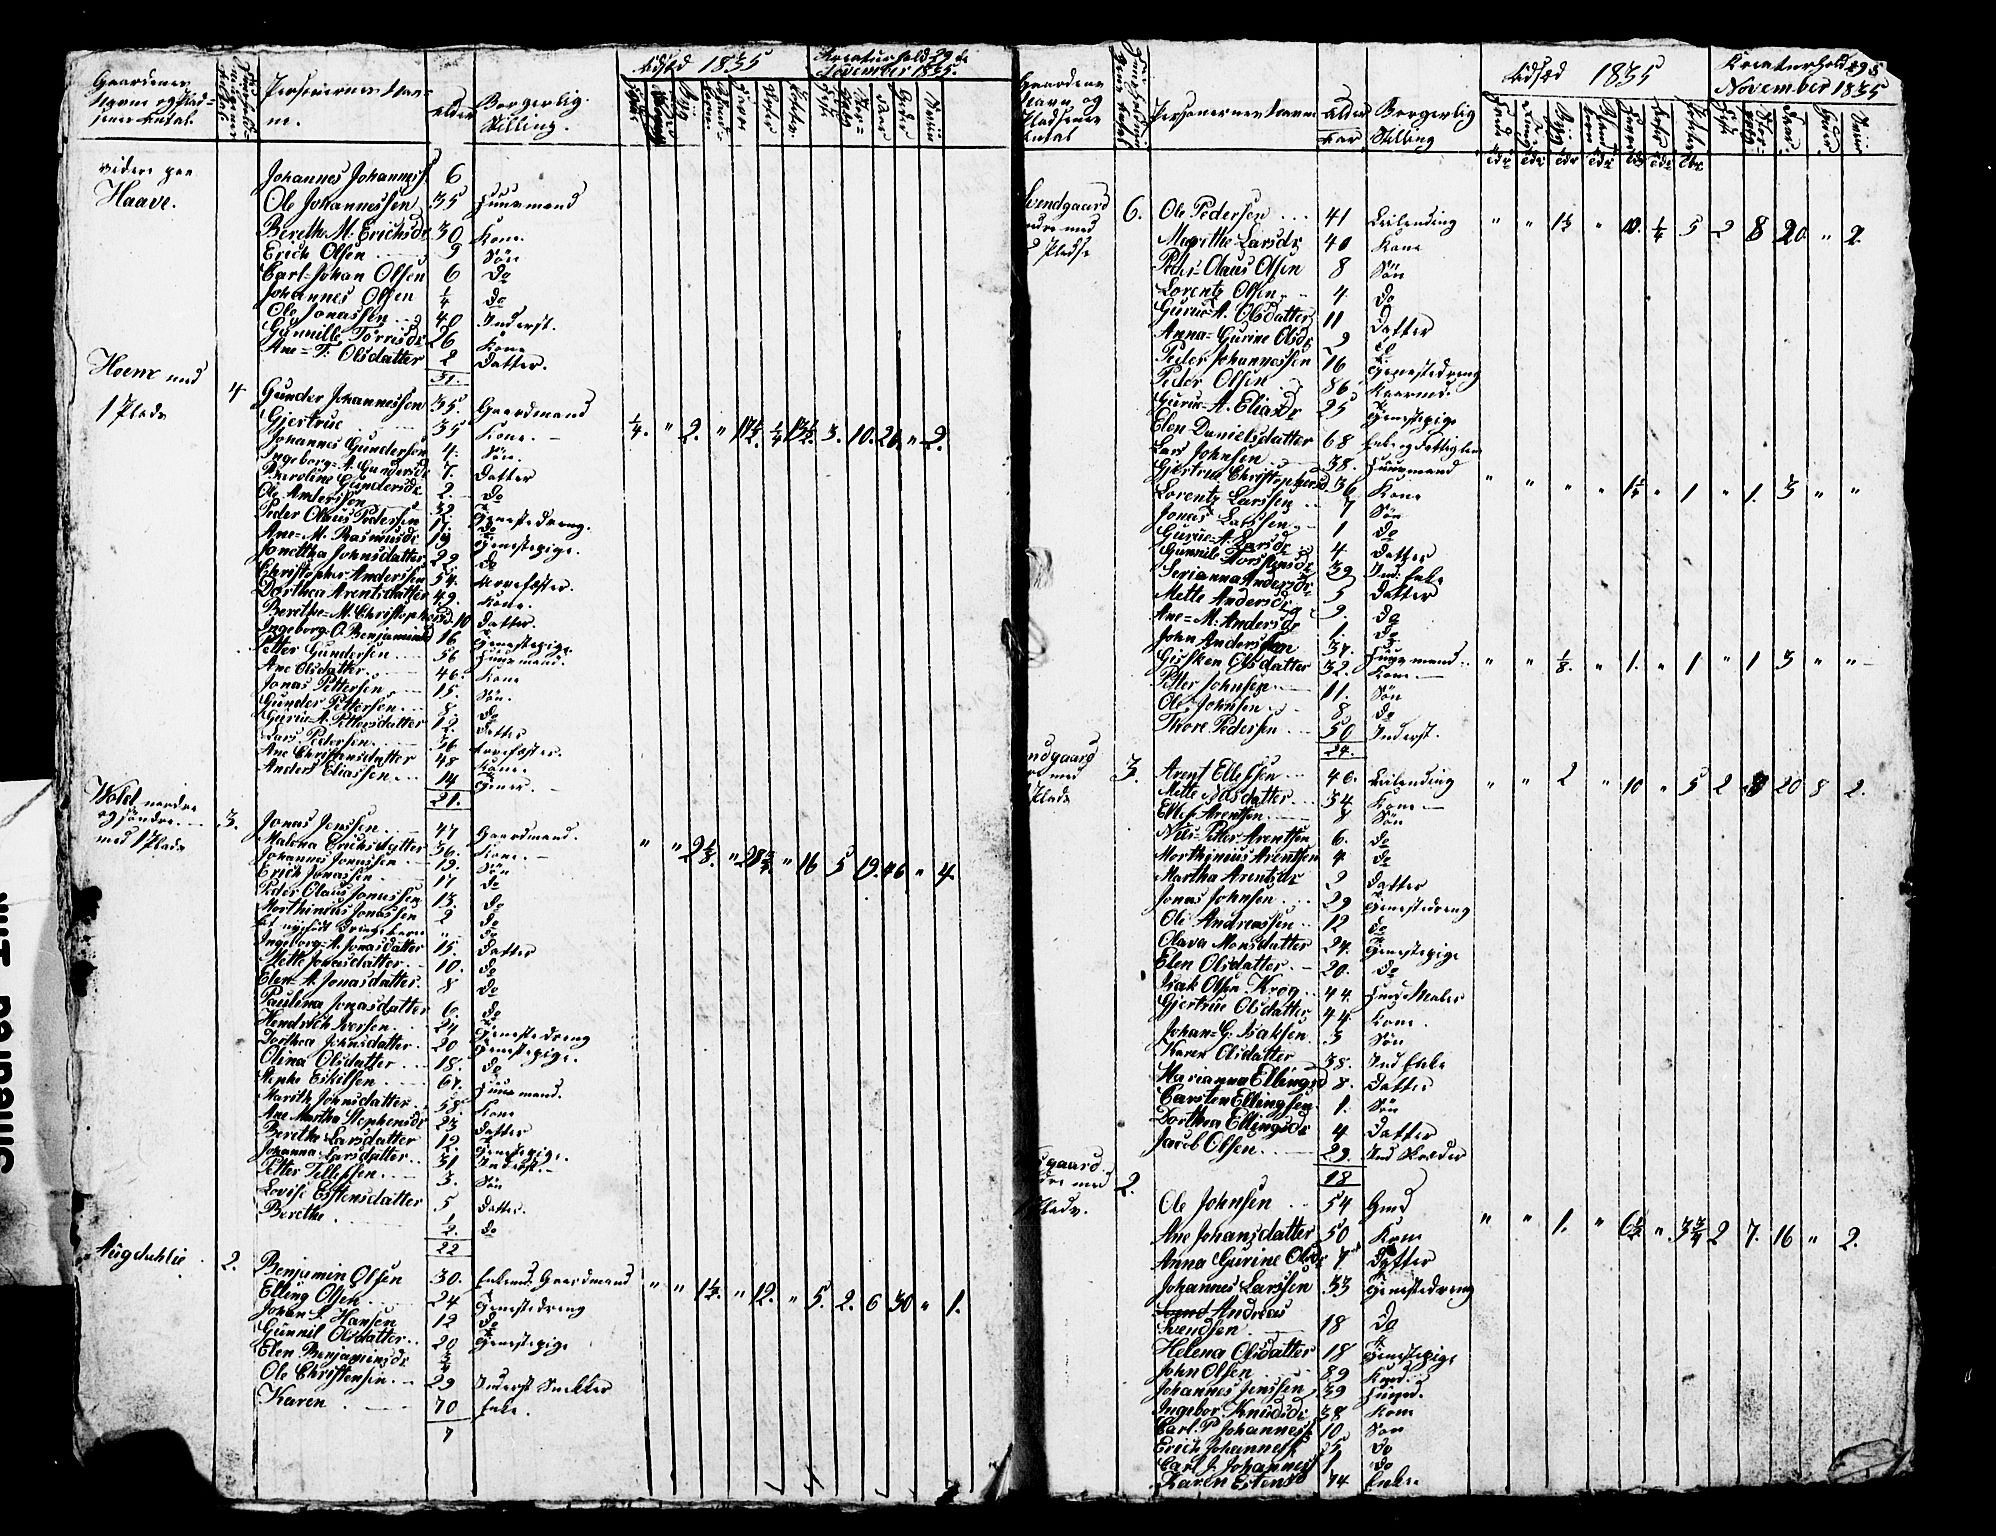 Gaardenes
Navne og Plad-
senes Antal.
Personernes Nav-
ne.
Alder
Borgerlig
Stilling.
Udsæd 1835
Kreaturhold 29de
November 1835.
videre paa
Haave.
Johannes Johanness. 6
Ole Johannessen 35 Huusmand
Berethe M. Erichsdr 30 Kone
Erich Olsen 9 Søn
Carl-Johan Olsen 6 Do
Johannes Olsen 1/4 Do
Ole Jonassen 40 Inderst.
Gunnille Torrisdr 26 Kone
Ane-F. Olsdatter 2 Datter.
31.
Hoem med
1 Plads
4
Gunder Johannessen 35. Gaardmand 1/4. " 2. " 17 1/2 1/4 13 1/2 3. 10. 26. " 2.
Gjertrue 35 Kone
Johannes Gundersen 4. Søn
Ingeborg-A. Gundersdr 7. Datter
Karoline Gundersdr 2. Do
Ole Anderssen 32. Tjenestedreng.
Peder Olaus Pedersen 17. Do
Ane-M. Rasmusdr 19 Tjenestepige.
Jonettha Johnsdatter 22. Do
Christopher Anderssen 54.
Dorthea Arentsdatter 49. Kone.
Berethe-M. Christophersd. 10 Datter.
Ingeborg O. Benjaminsd 16 Tjenestepige
Petter Gundersen 56 Huusmand.
Ane Olsdatter 46. Kone
Jonas Pettersen 15. Søn
Gunder Pettersen 8. Do
Gurue-A. Pettersdatter 12. Datter
Lars Pedersen 36
Ane Christensdatter 48 Kone.
Anders Eliassen 14
21.
Wold nordre
og søndre
med 1 Plads
3.
Jonas Jenssen 47 Gaardmand. " " 2 1/8. " 28 3/4 " 16 5 19. 46 " 4.
Malena Erichsdatter 36. Kone
Johannes Jonassen 19. Søn
Erich Jonassen 17 Do
Peder Olaus Jonassen 13. Do
Morthinius Jonassen 2 Do
Et nyfødt Drengebarn " Do
Ingeborg-A. Jonasdatter 15. Datter
Mette Jonasdatter 10. Do
Elen-A. Jonasdatter. 8 Do
Paulina Jonasdatter 6. Do
Hendrich Iversen 24 Tjenestedreng
Dorthea Johnsdatter 20 Tjenestepige.
Olina Olsdatter 18. Do
Stephe Eskilsen 67. Huusmand.
Marith Johnsdatter 58. Kone
Ane Martha Stephensdr 23 Datter
Berethe Larsdatter 12. Tjenestepige.
Johanna Larsdatter 31 Inderst.
Petter Tellefsen 3. Søn
Lovise Estensdatter 5 Datter.
Berethe 1/2. Do
22
Augdahlie
2.
Benjamin Olsen 30. Enkemd. Gaardmand " " 1 1/2. " 12. " 5. 2. 6 30 " 1.
Elling Olsen 24 Tjenestedreng
Johan P. Hansen 12 Do
Gunnil Olsdatter 20 Tjenestepige
Elen Benjaminsdr 3/4
Ole Christensen 29 Inderst Snekker
Karen 70 Enke.
7
Gaardenes
Navne og
Pladsenes
Antal
Personernes Navne
Alder
Aar
Borgerlig
Stilling
Udsæd 1835
Kreaturhold 29de
November 1835
Tdr Tdr Tdr Tdr Tdr Tdr Tdr
Svendgaard
med
Pladse
6.
Ole Pedersen 41 Leilending " " 1 1/2 " 10. 1/4 5 2 8 20. " 2.
Magrithe Larsdr 40 Kone
Peder-Olaus Olsen 8 Søn
Lorentz Olsen 4. Do
Gurue-A. Olsdatter 11 Datter
Anna-Gurine Olsdr 9 Do
Peder Johannessen 16 Tjenestedreng
Peder Olsen 86 Kaarmd.
Gurue-A. Eliasdr 25 Tjenestepige
Elen Danielsdatter 68 Enke og Fattiglem
Lars Johnsen 38. Huusmand " " " " 1 1/2 " 1 " 1. 3 " "
Gjertrue Christophersd 36 Kone
Lorentz Larssen 7 Søn
Jonas Larssen 1 Do
Gurue-A. Larsdr 4. Datter
Gunnile Torstensdr 39 Ind. Enke
Serianna Andersdr 5 Datter
Mette Andersdr 2. Do
Ane-M. Andersdr 1. Do
John Anderssen 37. Huusmand " " 1/8. " 1. " 1 " 1 3 " "
Gusken Olsdatter 32. Kone
Petter Johnsen 11. Søn
Ole Johnsen 8 Do
Thore Pedersen 50 Inderst.
24.
med
Plads
3.
Arent Ellefsen 46. Leilending " " 2 " 10 " 5 2 8 20 8 2.
Mette Olsdatter 34. Kone
Ellef Arentsen 8 Søn
Nils-Petter Arentsen 6. Do
Morthinius Arentsen 4 Do
Martha Arentsdr 2 Datter
Jonas Johnsen 29 Tjenestedreng
Ole Andreassen 12 Do
Olava Monsdatter 24. Tjenestepige
Elen Olsdatter 20. Do
Isak Olsen Krog 44.
Gjertrue Olsdatter 44. Kone.
Johan-G. Isaksen 3 Søn
Karen Olsdatter 38. Ind Enke
Marianna Ellingsd 8. Datter
Carsten Ellingsen 1. Søn
Dorthea Ellingsdr 4 Datter
Jacob Olsen 29. Ind Skræder
18
med
Plads.
2.
Ole Johnsen 54 Gmd " " 1. " 6 1/2 " 3 3/4 2 7. 16 " 2.
Ane Johansdatter 50 Kone
Anna Gurine Olsdr 7 Datter
Johannes Larssen 33 Tjenestedreng
Andreas
Svendsen 18 Do
Helena Olsdatter 18 Tjenestepige
John Olsen 89 Kmd.
Johannes Jenssen 39 Huusmd.
Ingebor Knudsdr 38 Kone
Carl. P. Johanness 10 Søn
Erich Johanness 5 Do
Carl J. Johanness 1 Do
Karen Estensd 74 Enke